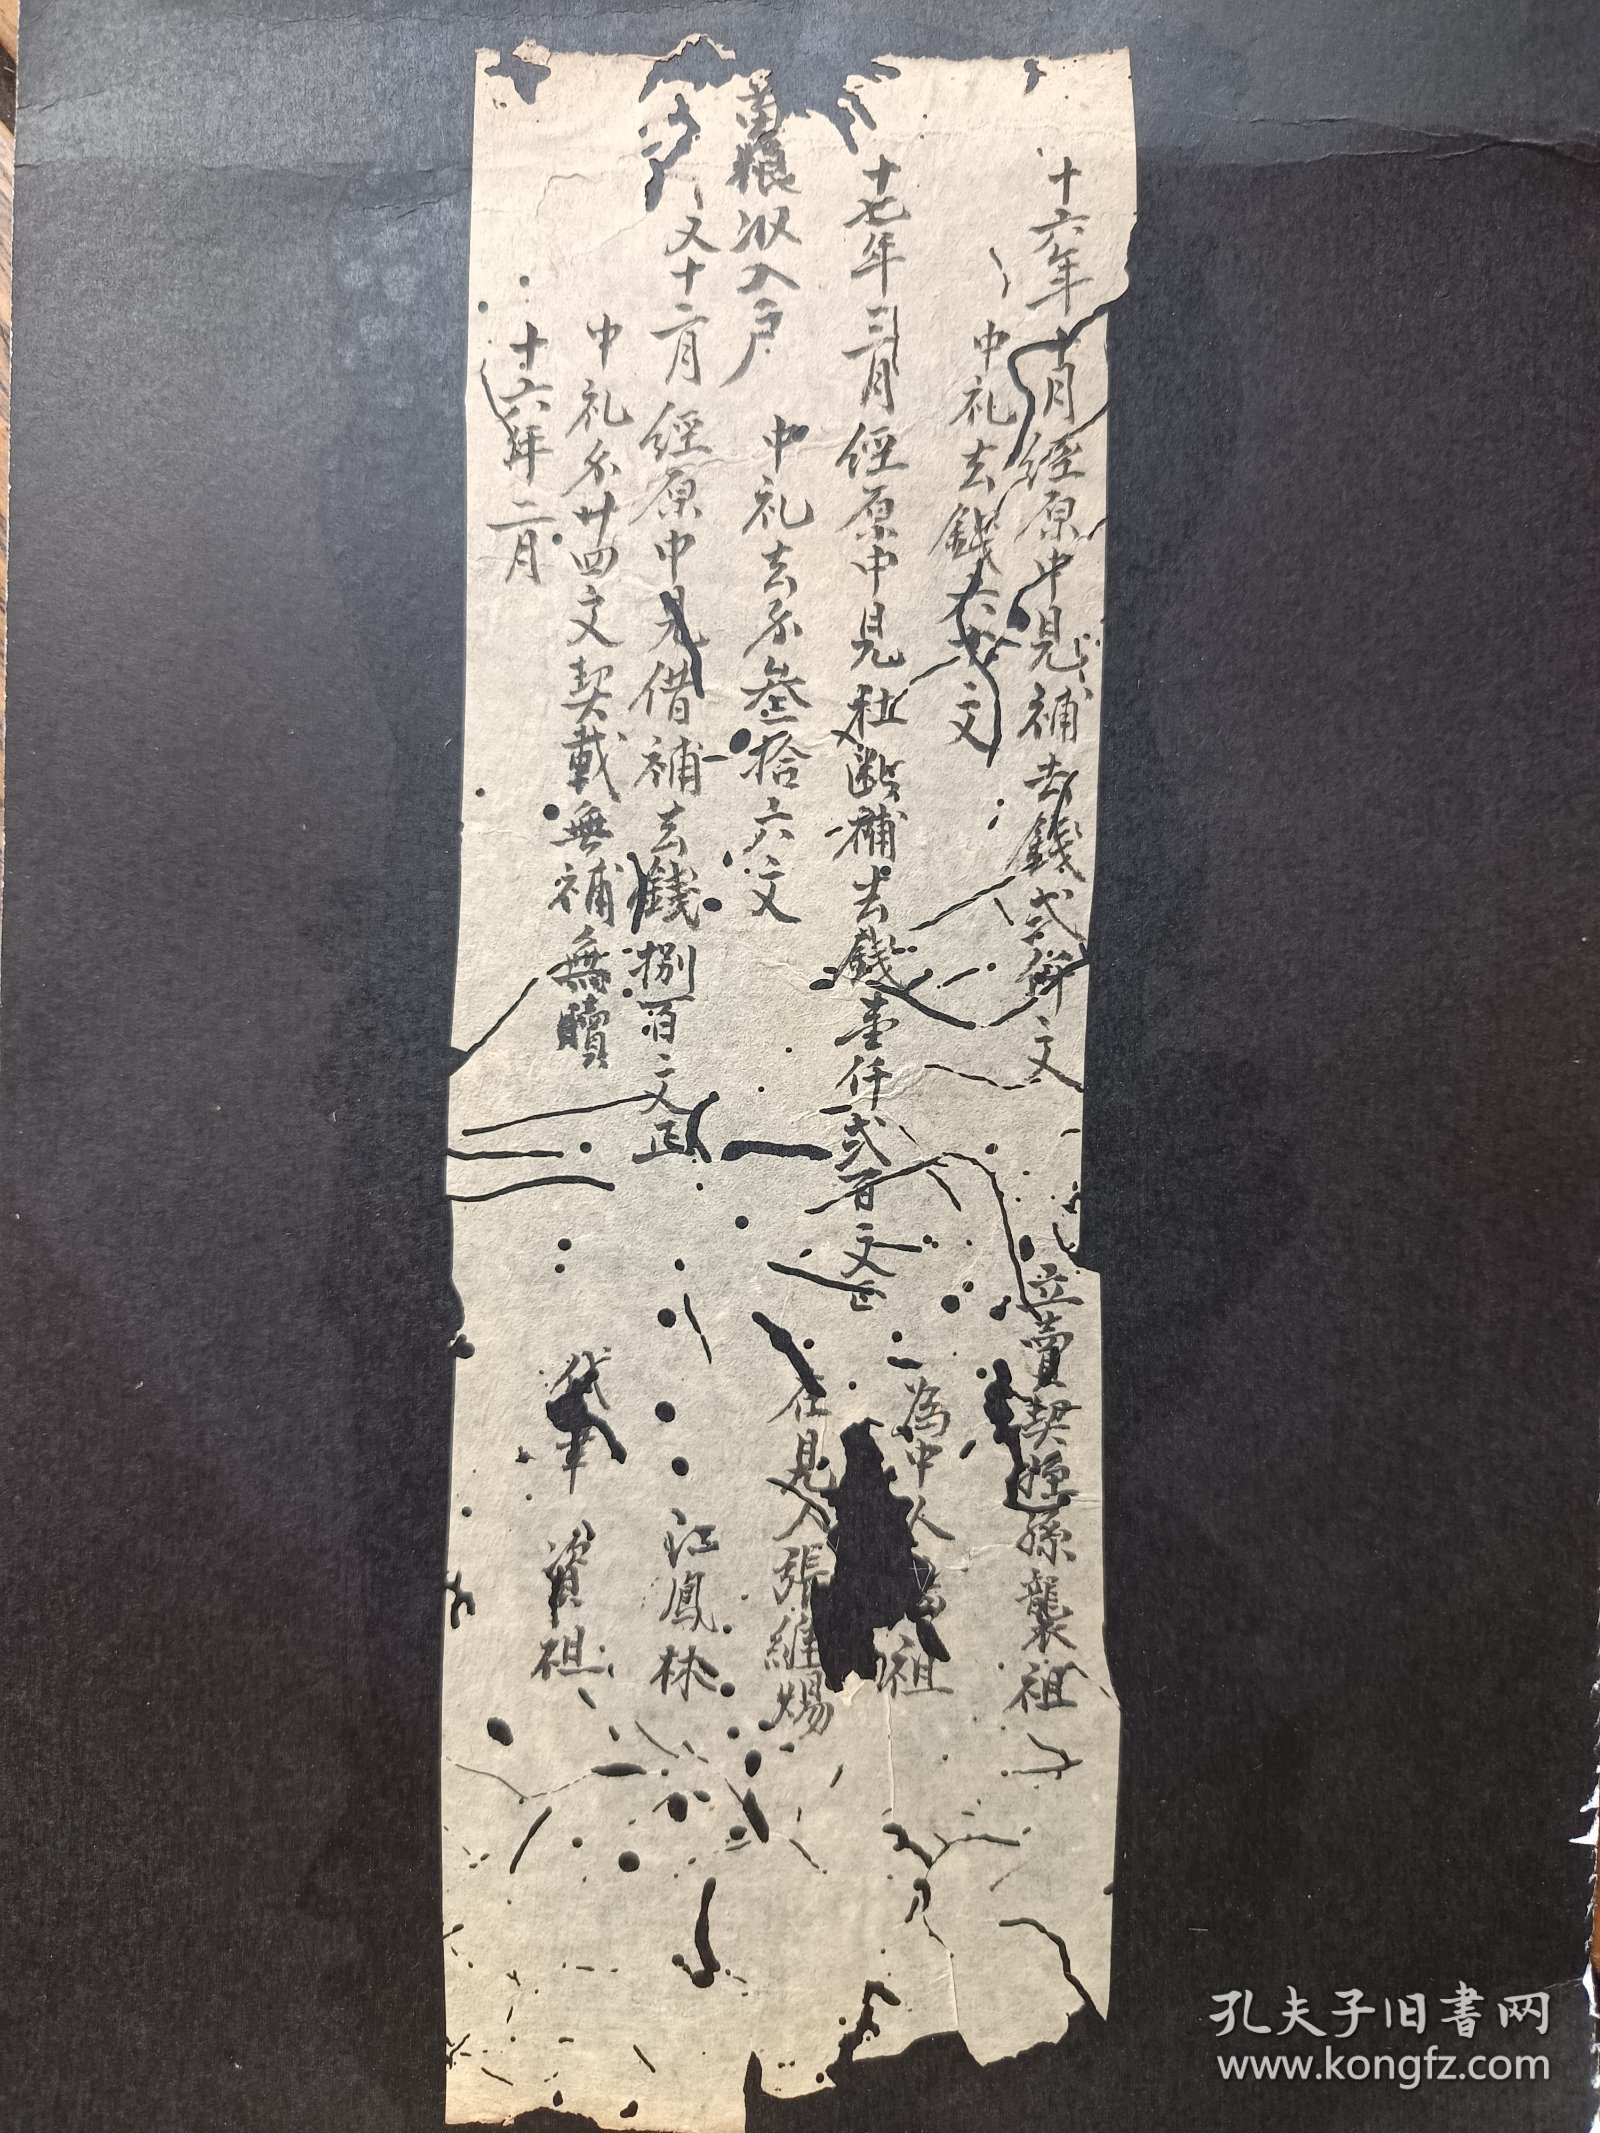 十六年十月經原中見補去錢弍仟文
中礼去錢六十文
十七年三月經原中見社断補去錢壹仟弍百文正
苗粮收入戶
中礼去钱叁拾六文
又十二月經原中見借補去錢捌百文正
中礼钱廿四文契載無補無贖
十六年二月
立賣契姪孫襲祖
為中人 祖
在見人張維煬
江鳳林
代筆 資祖
孔夫子旧書网
www.kongfz.com